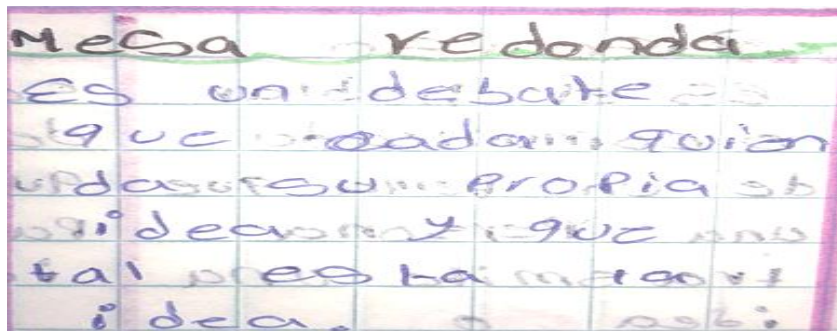 Mesa redonda
Es un debate
que cada quien
da su propia
idea y que
tal es la
idea.